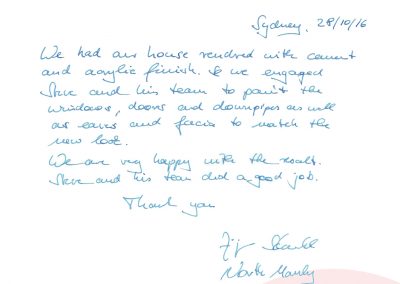 Sydney, 28/10/16
We had our house rendred with cement
and acrylic finish. & we engaged
Steve and his team to paint the
windows, doors and downpipes as well
as eaves and facia to match the
new look.
We are very happy with the result.
Steve and his team did a good job.
Thank you
North Manly